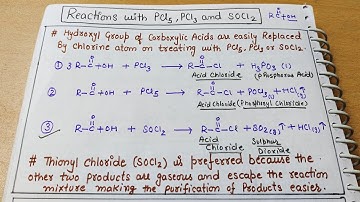 Reactions with PCl5, PCl3 and SOCl2
R-C(=O)+OH
# Hydroxyl Group of Carboxylic Acids are easily Replaced
By Chlorine atom on treating with PCl5, PCl3 or SOCl2.
① 3R-C(=O)+OH + PCl3 → R-C(=O)-Cl + H3PO3 (l)
Acid Chloride (Phosphorus Acid)
② R-C(=O)+OH + PCl5 → R-C(=O)-Cl + POCl3 + HCl(g)↑
Acid Chloride (Phosphoryl Chloride)
③ R-C(=O)+OH + SOCl2 → R-C(=O)-Cl + SO2(g)↑ + HCl(g)↑
Acid Chloride Sulphur Dioxide
# Thionyl Chloride (SOCl2) is preferred because the
other two products are gaseous and escape the reaction
mixture making the purification of Products easier.